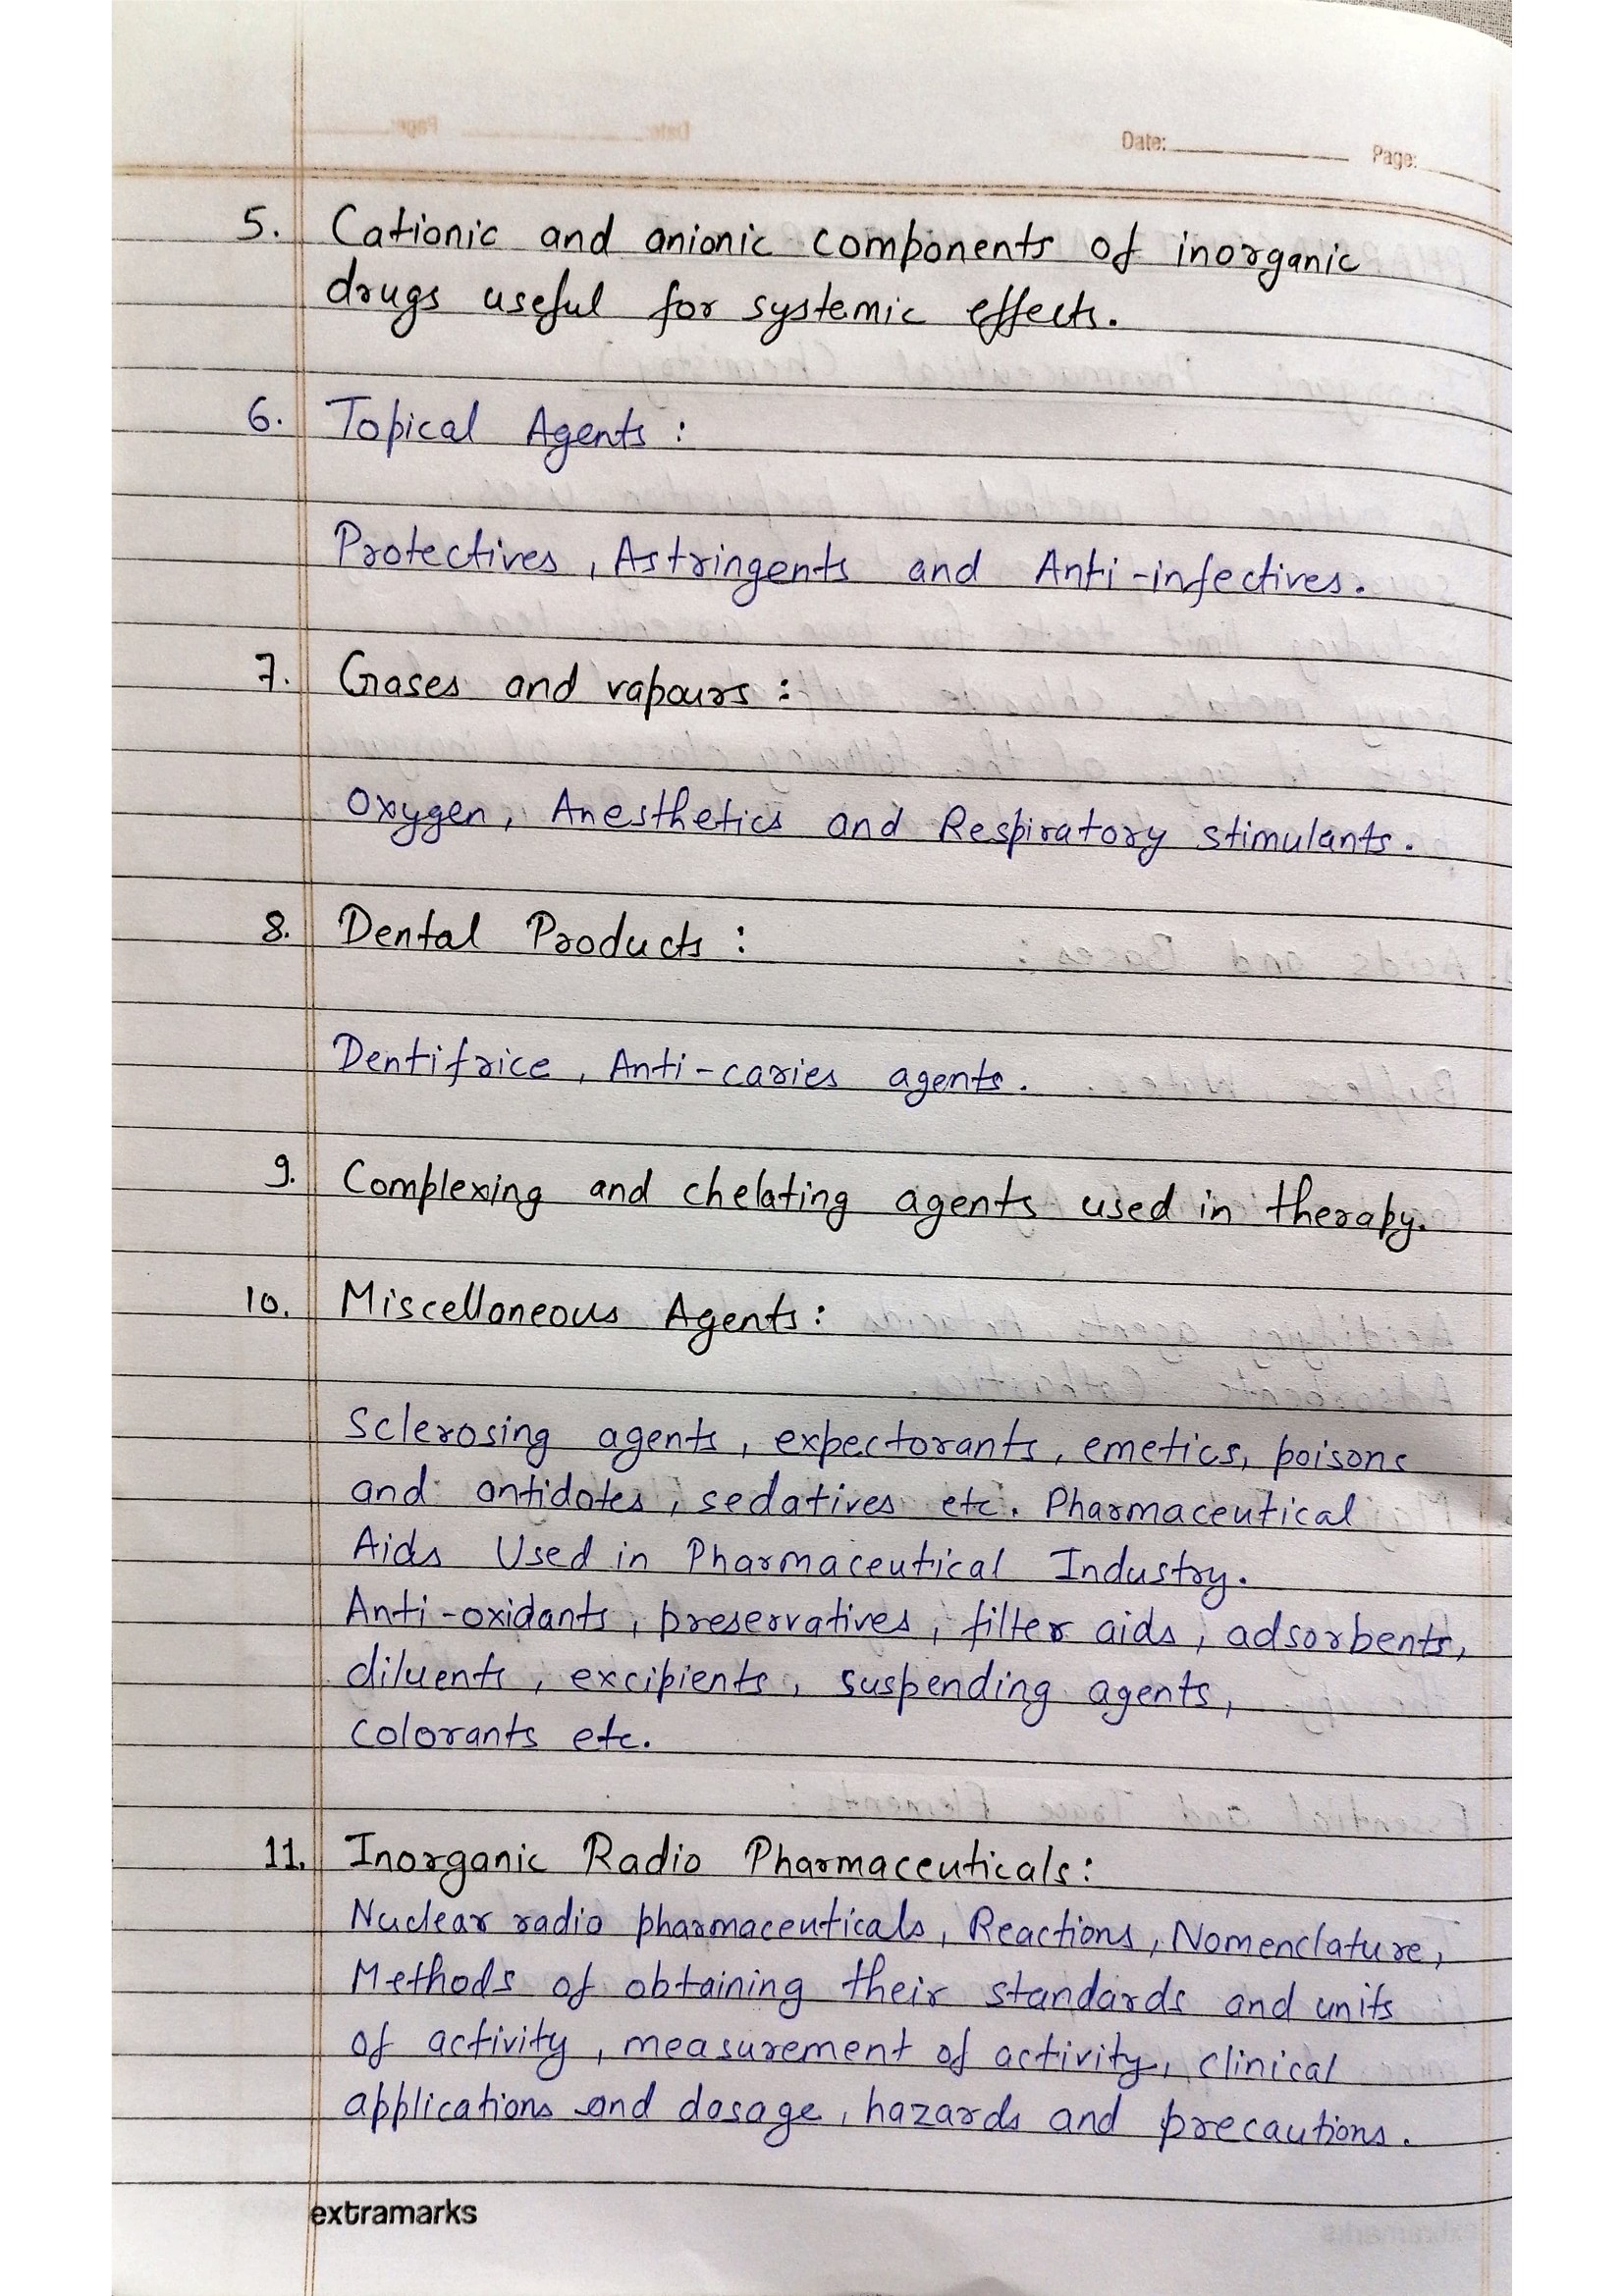 Date: Page:
5. Cationic and anionic components of inorganic
drugs useful for systemic effects.
6. Topical Agents :
Protectives , Astringents and Anti-infectives.
7. Gases and vapours :
Oxygen, Anesthetics and Respiratory stimulants.
8. Dental Products :
Dentifrice , Anti-caries agents.
9. Complexing and chelating agents used in therapy.
10. Miscellaneous Agents :
Sclerosing agents , expectorants, emetics, poisons
and antidotes, sedatives etc. Pharmaceutical
Aids Used in Pharmaceutical Industry.
Anti-oxidants, preservatives, filter aids, adsorbents,
diluents, excipients, suspending agents,
colorants etc.
11. Inorganic Radio Pharmaceuticals:
Nuclear radio pharmaceuticals, Reactions, Nomenclature,
Methods of obtaining their standards and units
of activity, measurement of activity, clinical
applications and dosage, hazards and precautions.
extramarks